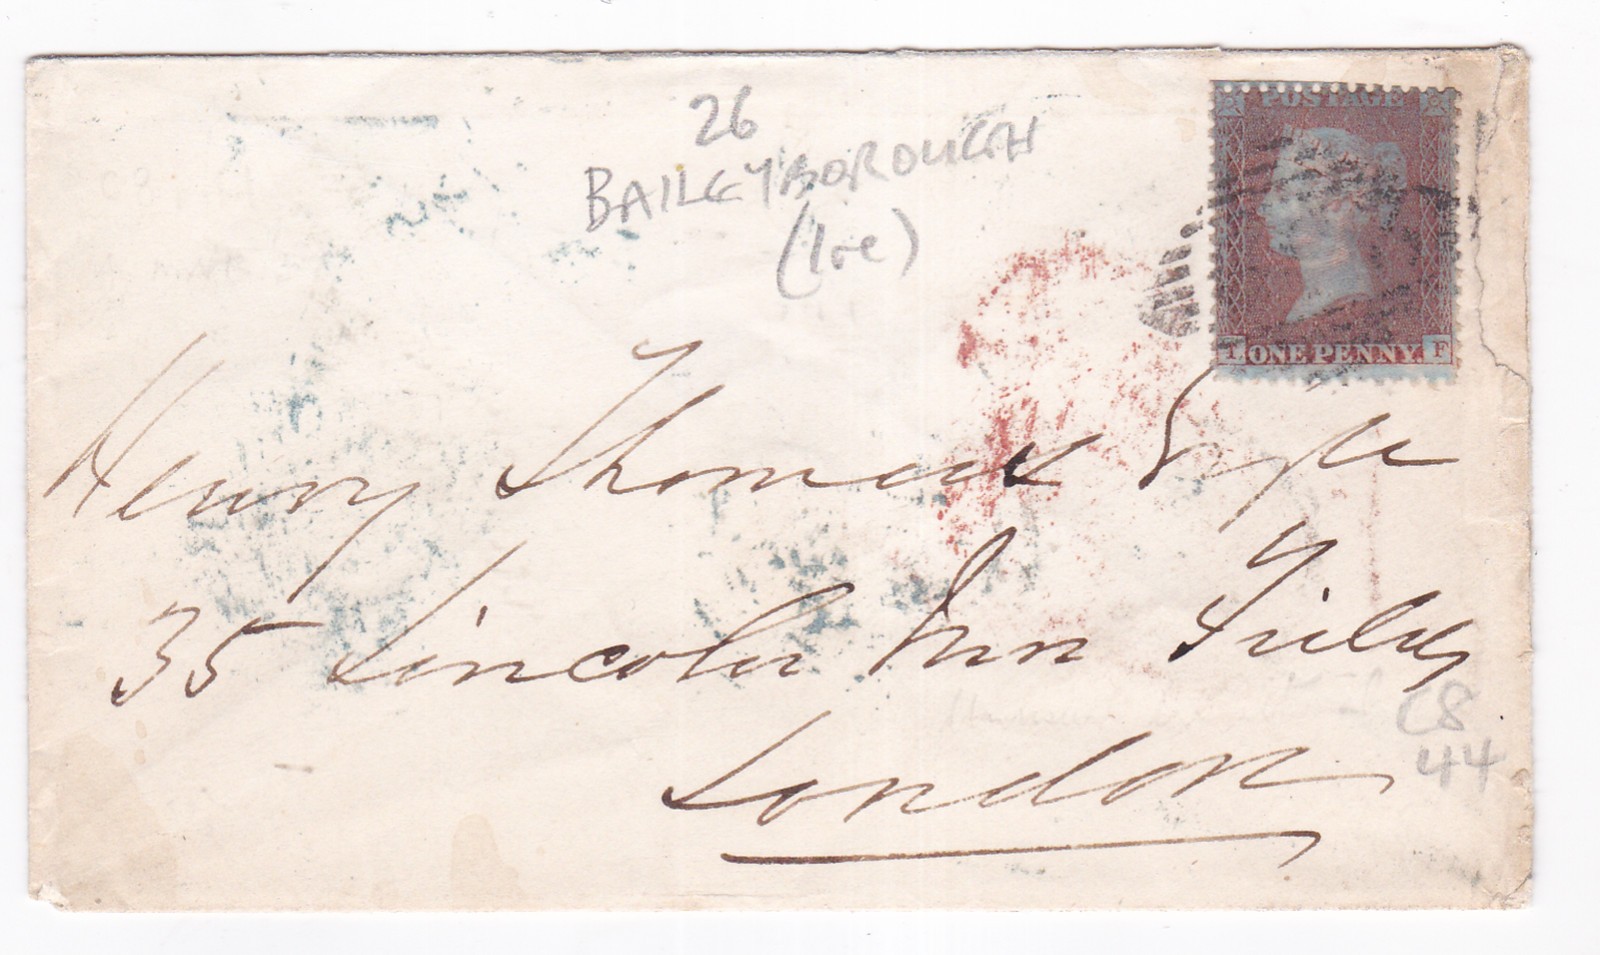 26
BAILEYBOROUGH
(Ire)
POSTAGE
ONE PENNY. F
Henry Thomas Esqre
35 Lincoln Inn Fields
London
44